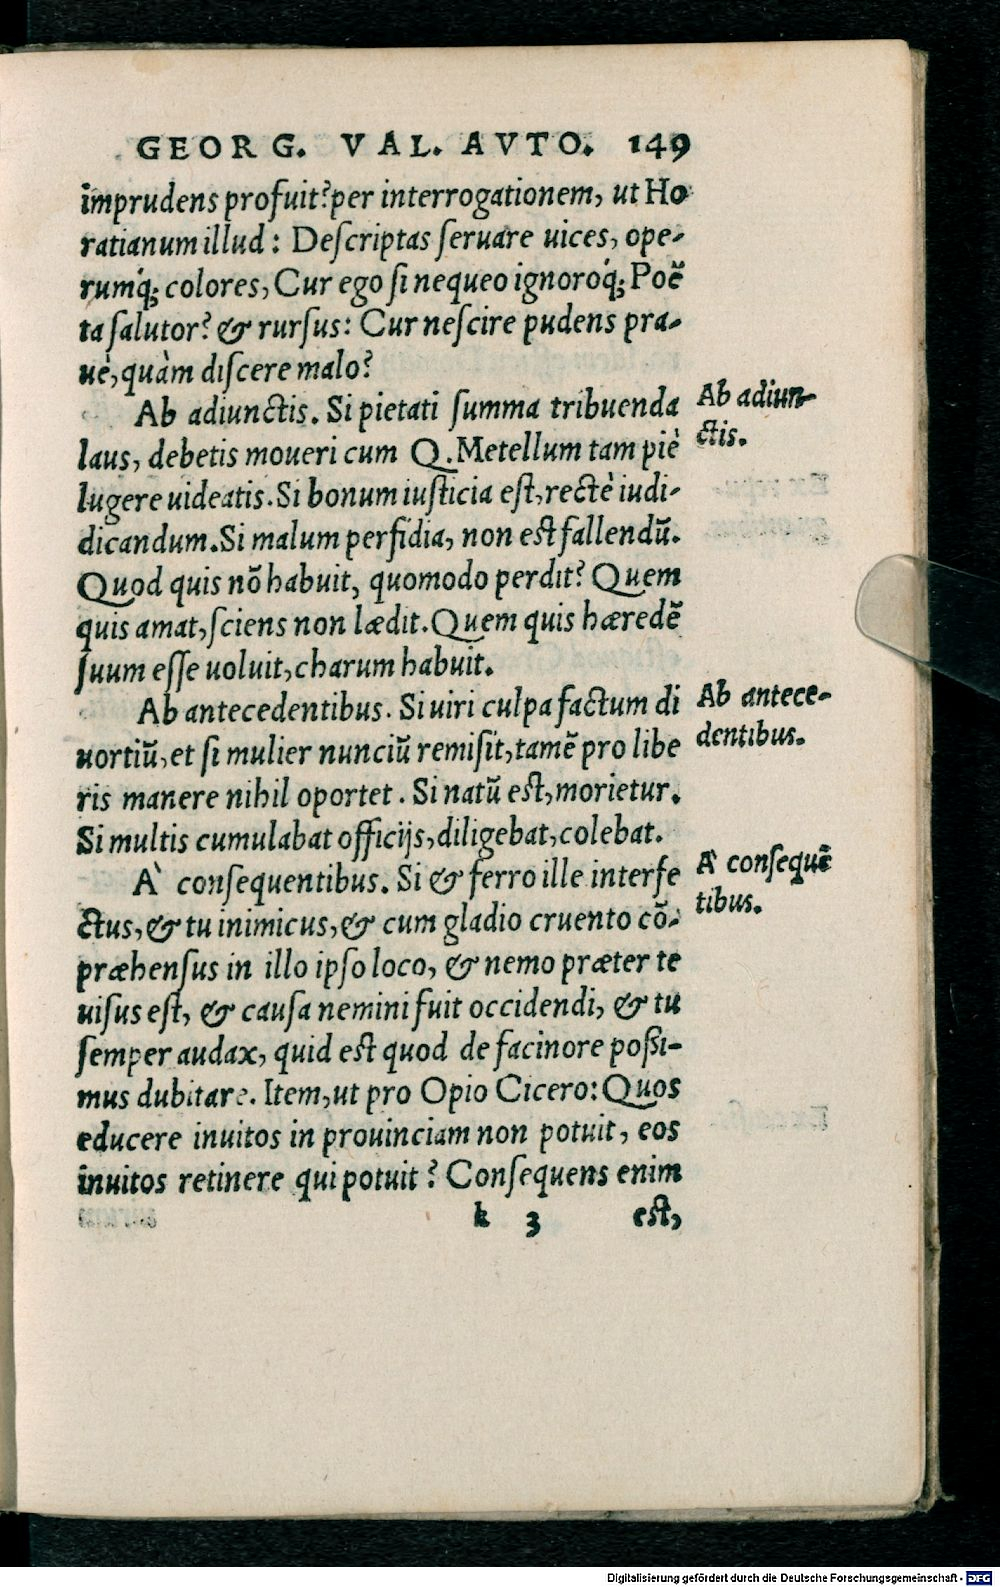 GEORG. VAL. AVTO. 149
imprudens profuit? per interrogationem, ut Ho
ratianum illud: Descriptas seruare uices, ope-
rumq́; colores, Cur ego si nequeo ignoroq́; Poë
ta salutor? & rursus: Cur nescire pudens pra-
uè, quàm discere malo?
Ab adiunctis. Si pietati summa tribuenda
laus, debetis moueri cum Q. Metellum tam piè
lugere uideatis. Si bonum iusticia est, rectè iudi-
dicandum. Si malum perfidia, non est fallendũ.
Quod quis nõ habuit, quomodo perdit? Quem
quis amat, sciens non lædit. Quem quis hæredẽ
suum esse uoluit, charum habuit.
Ab antecedentibus. Si uiri culpa factum di
uortiũ, et si mulier nunciũ remisit, tamẽ pro libe
ris manere nihil oportet. Si natũ est, morietur.
Si multis cumulabat officijs, diligebat, colebat.
À consequentibus. Si & ferro ille interfe
ctus, & tu inimicus, & cum gladio cruento cõ-
præhensus in illo ipso loco, & nemo præter te
uisus est, & causa nemini fuit occidendi, & tu
semper audax, quid est quod de facinore possi-
mus dubitare. Item, ut pro Opio Cicero: Quos
educere inuitos in prouinciam non potuit, eos
inuitos retinere qui potuit? Consequens enim
k 3 est,
Ab adiun-
ctis.
Ab antece-
dentibus.
À consequẽ
tibus.
Digitalisierung gefördert durch die Deutsche Forschungsgemeinschaft - DFG